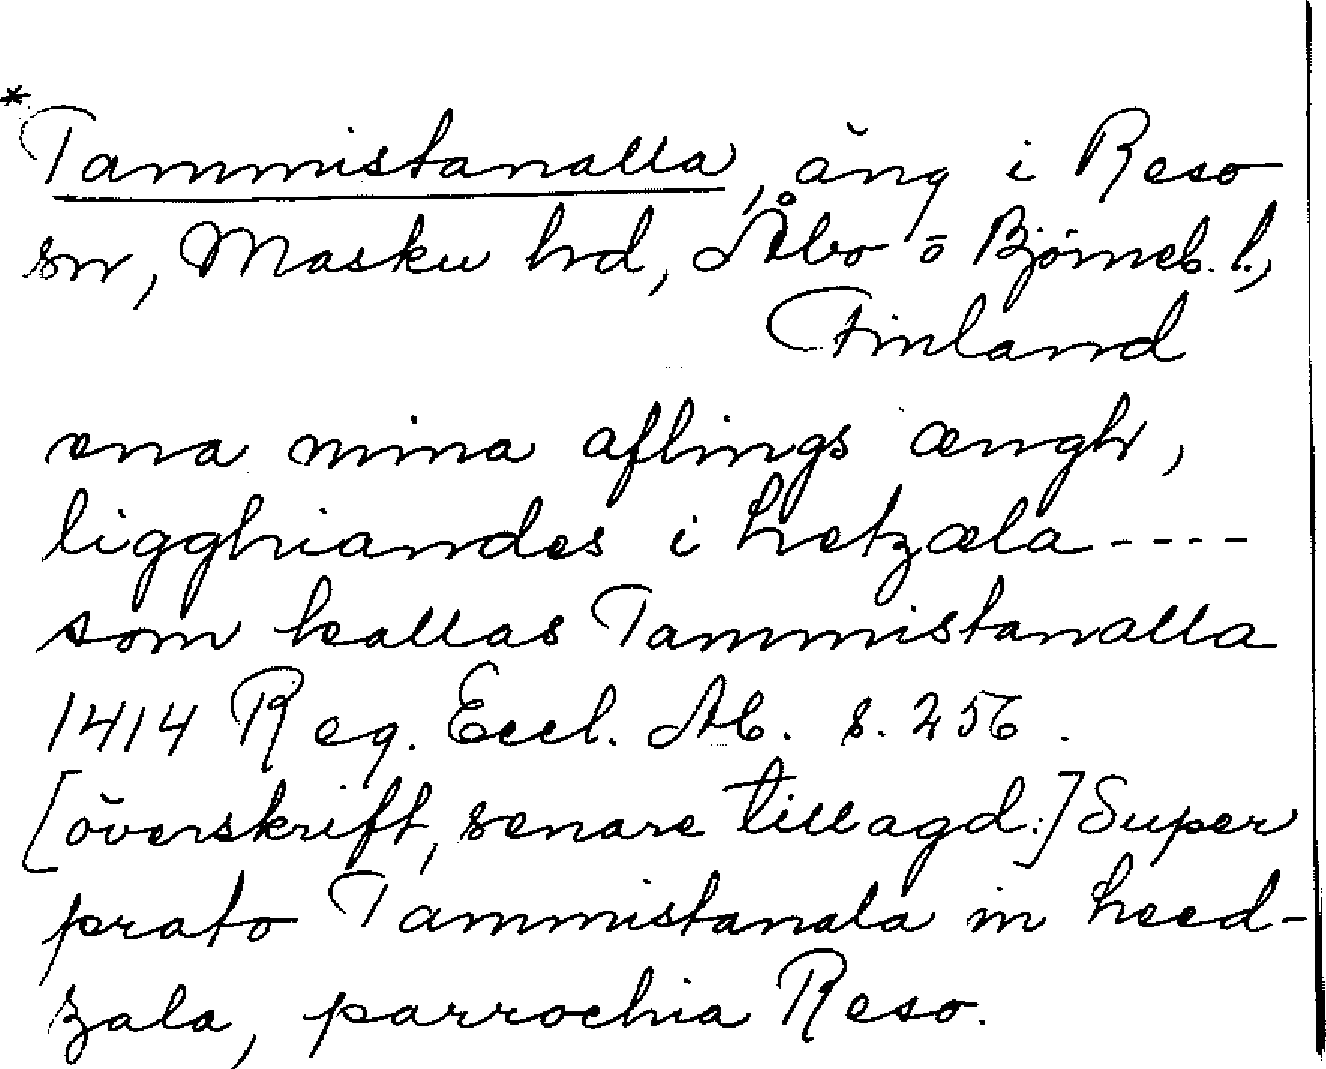 *Tammistanalla, äng i Reso
sn, Masku hd, Åbo o Björneb. l.,
Finland
ena mina aflings ængh,
ligghiandes i hetzæla ----
som kallas Tammistanalla
1414 Reg. Eccl. Ab. s. 256.
[överskrift, senare tillagd:] Super
prato Tammistanala in heed-
zala, parrochia Reso.